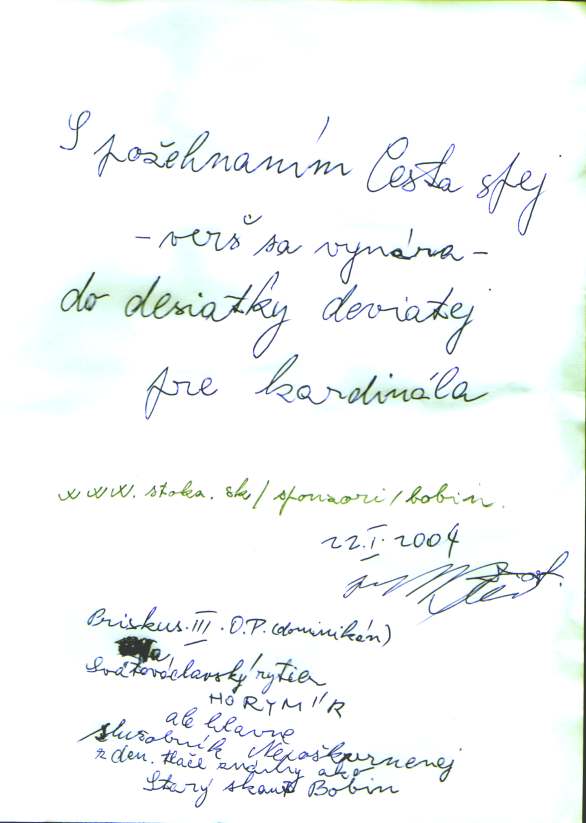 S požehnaním Cesta spej
- verš sa vynára -
do desiatky deviatej
pre kardinála
www.stoka.sk/sponzori/bobin.
22.I.2004
Briskus.III.O.P.(dominikán)
Svätováclavský rytier
HORYMÍR
ale hlavne
služobník Nepoškvrnenej
z den. tlače známy ako
Starý skaut Bobin